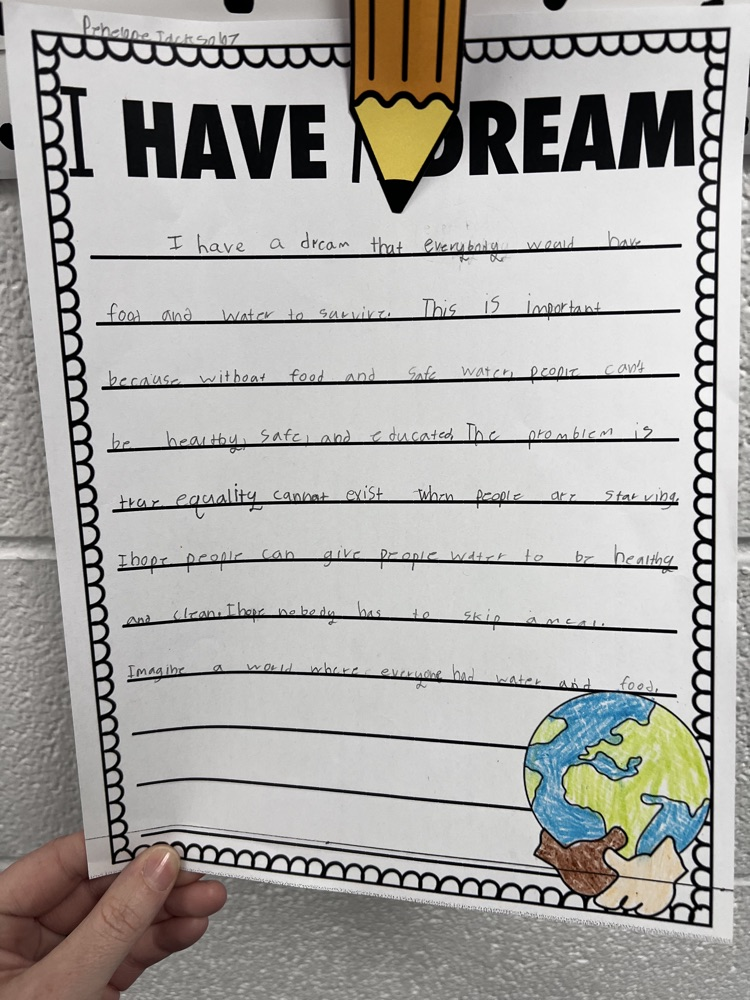 Penelope Jackson
I HAVE A DREAM
I have a dream that everybody would have
food and water to survive. This is important
because without food and safe water, people can't
be healthy, safe, and educated. The promblem is
true equality cannot exist when people are starving.
I hope people can give people water to be healthy
and clean. I hope nobody has to skip a meal.
Imagine a world where everyone had water and food.